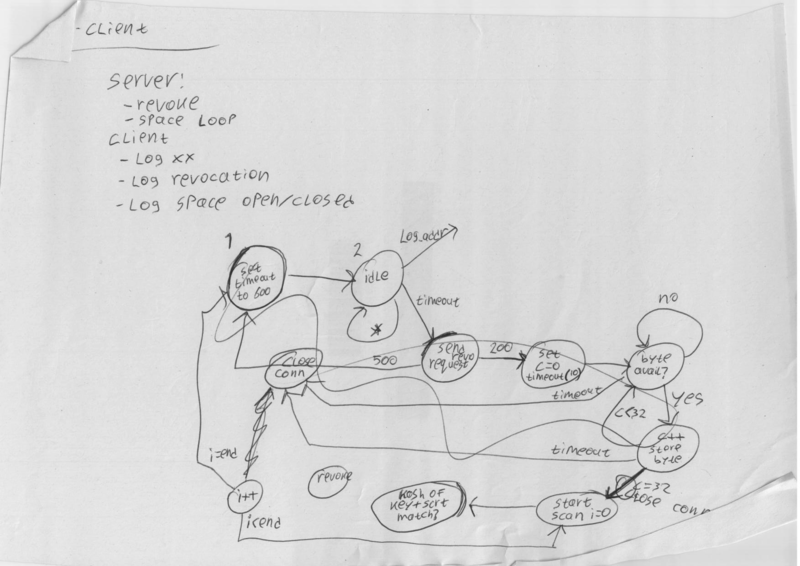 - CLient
Server!
- revoke
- space Loop
CLient
- Log xx
- Log revocation
- Log space open/closed
1
set
timeout
to 600
2
idle
Log.addr
timeout
*
close
conn
500
send
revo
request
200
set
C=0
timeout(10)
no
byte
avail?
timeout
yes
C<32
C++
store
byte
timeout
C=32
close conn
start
scan i=0
hash of
key+scrt
match?
revoke
i=end
i++
i<end